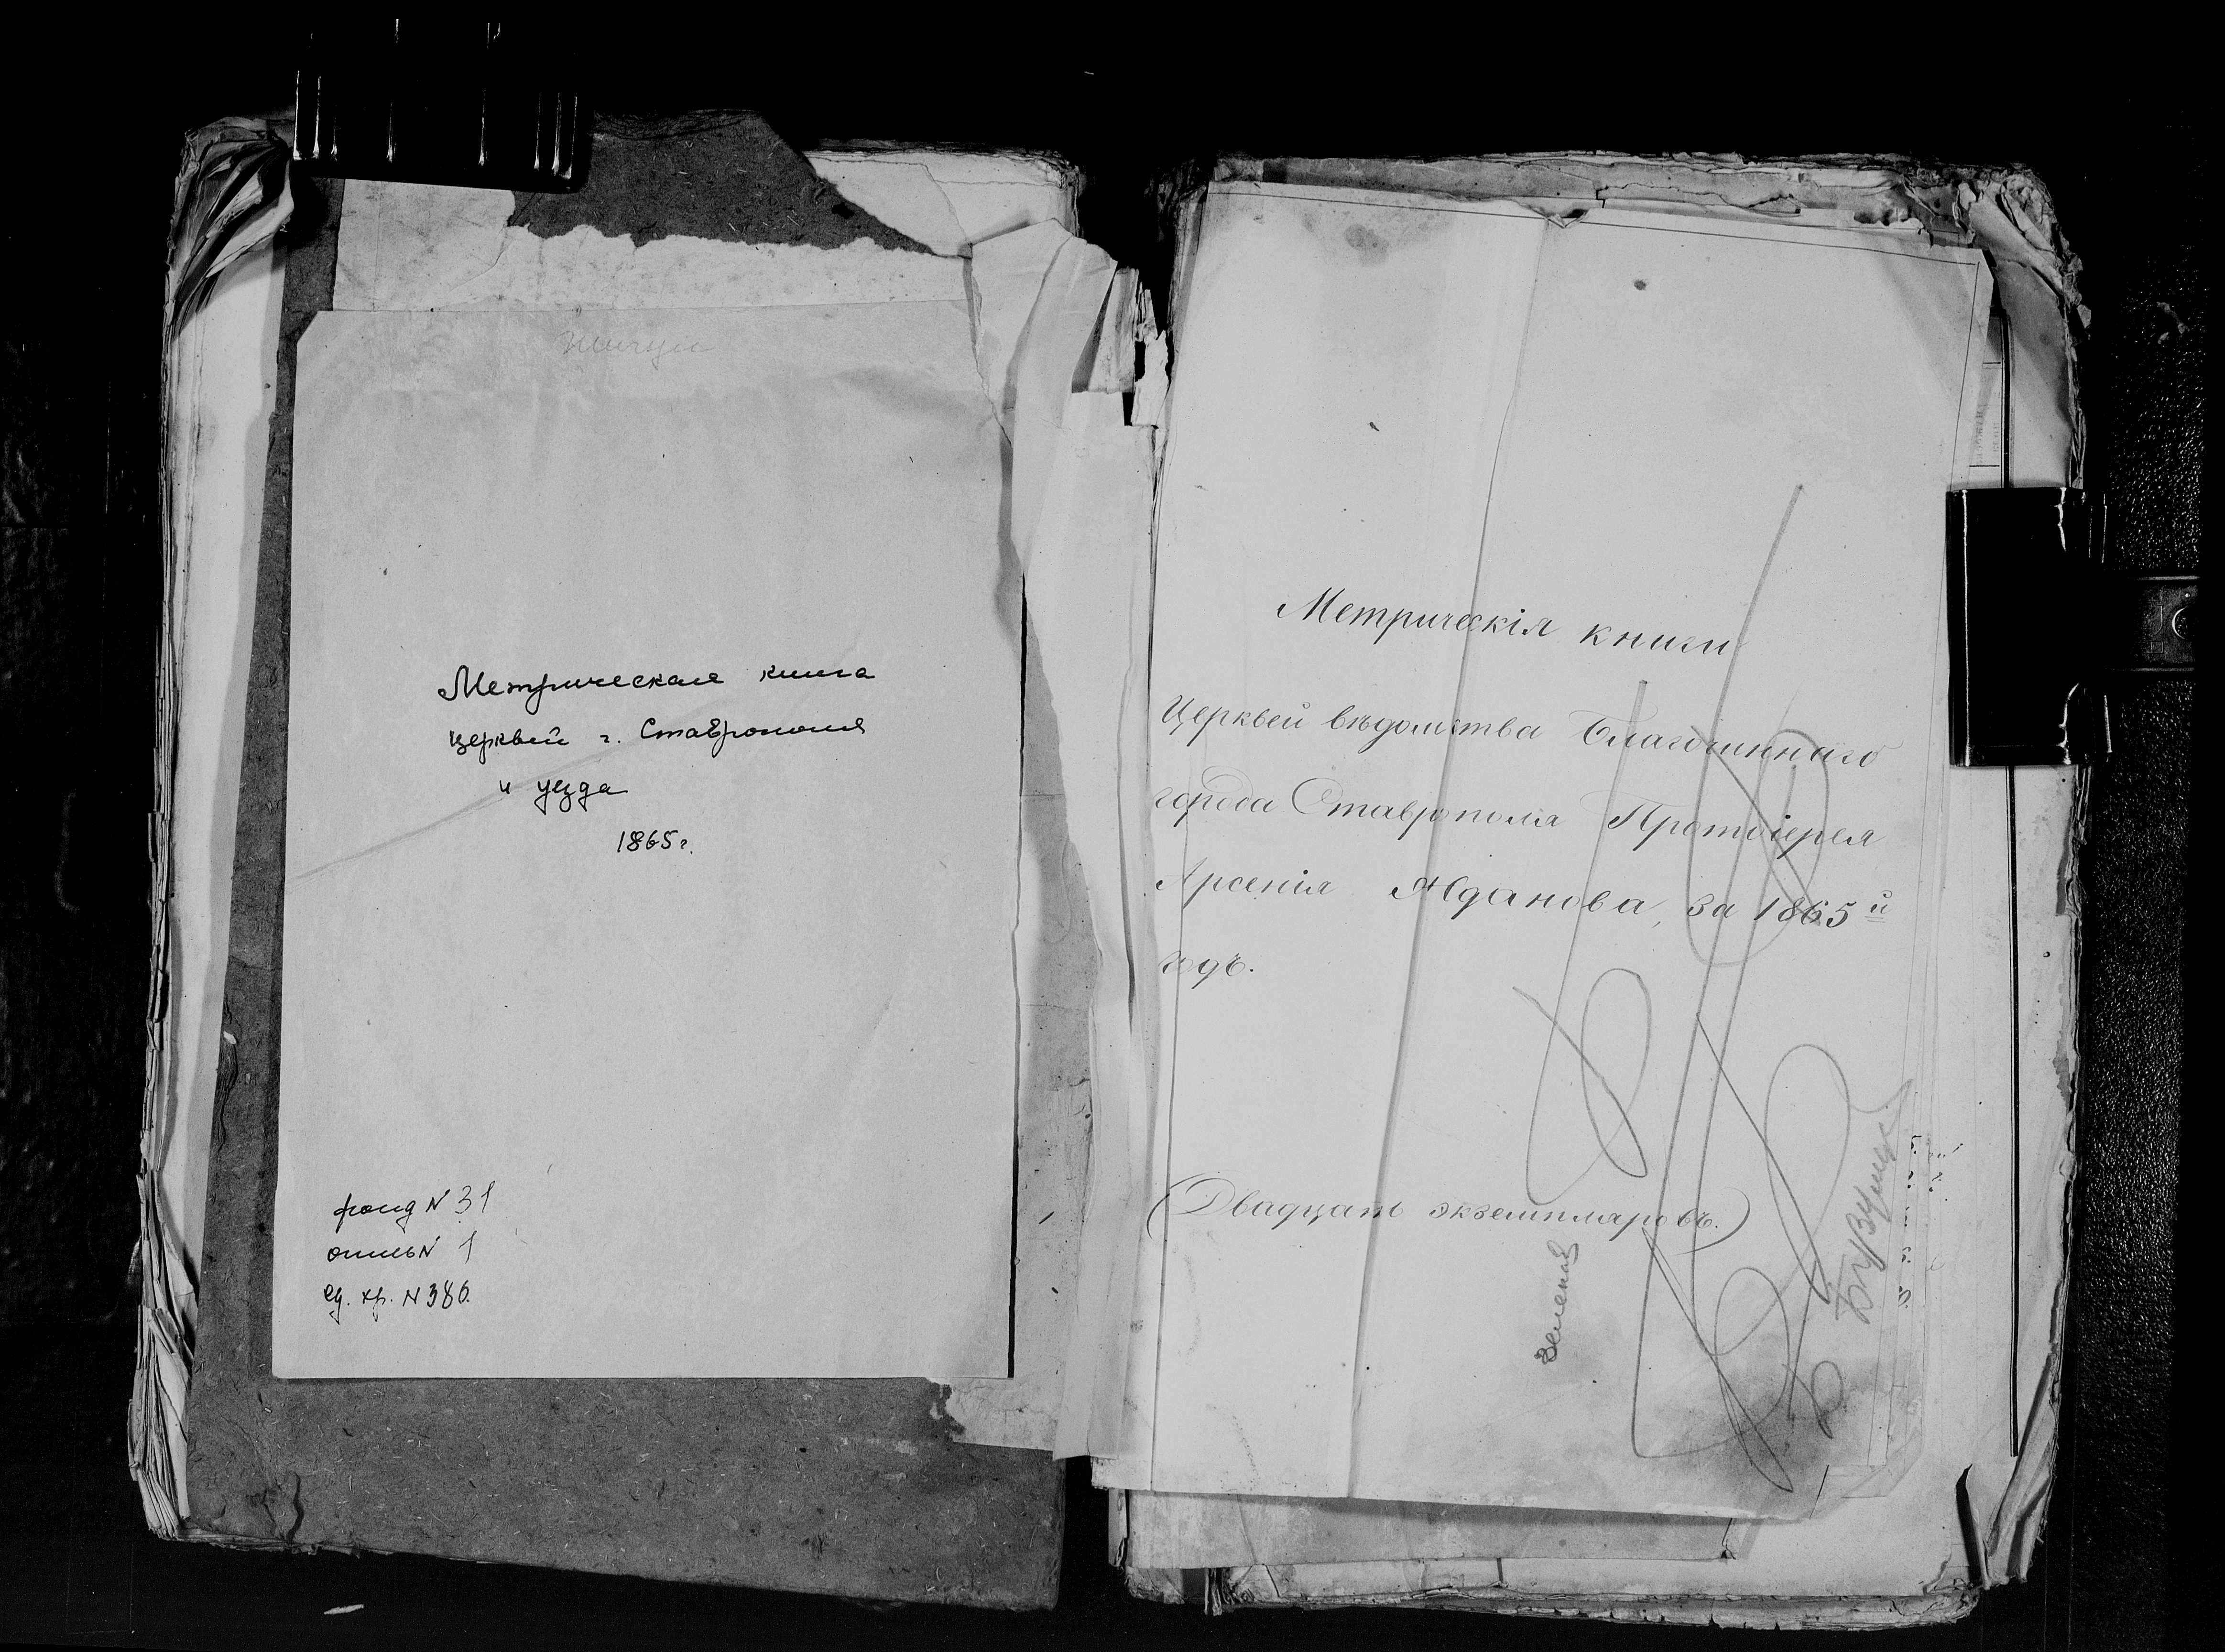 Жигули
Метрическая книга
церквей г. Ставрополя
и уезда
1865г.
фонд N 31
опись N 1
ед. хр. N 386.
Метрическія книги
Церквей вѣдомства Благочиннаго
города Ставрополя Протоіерея
Арсенія Жданова, за 1865й
годъ.
(Двадцать экземпляровъ.)